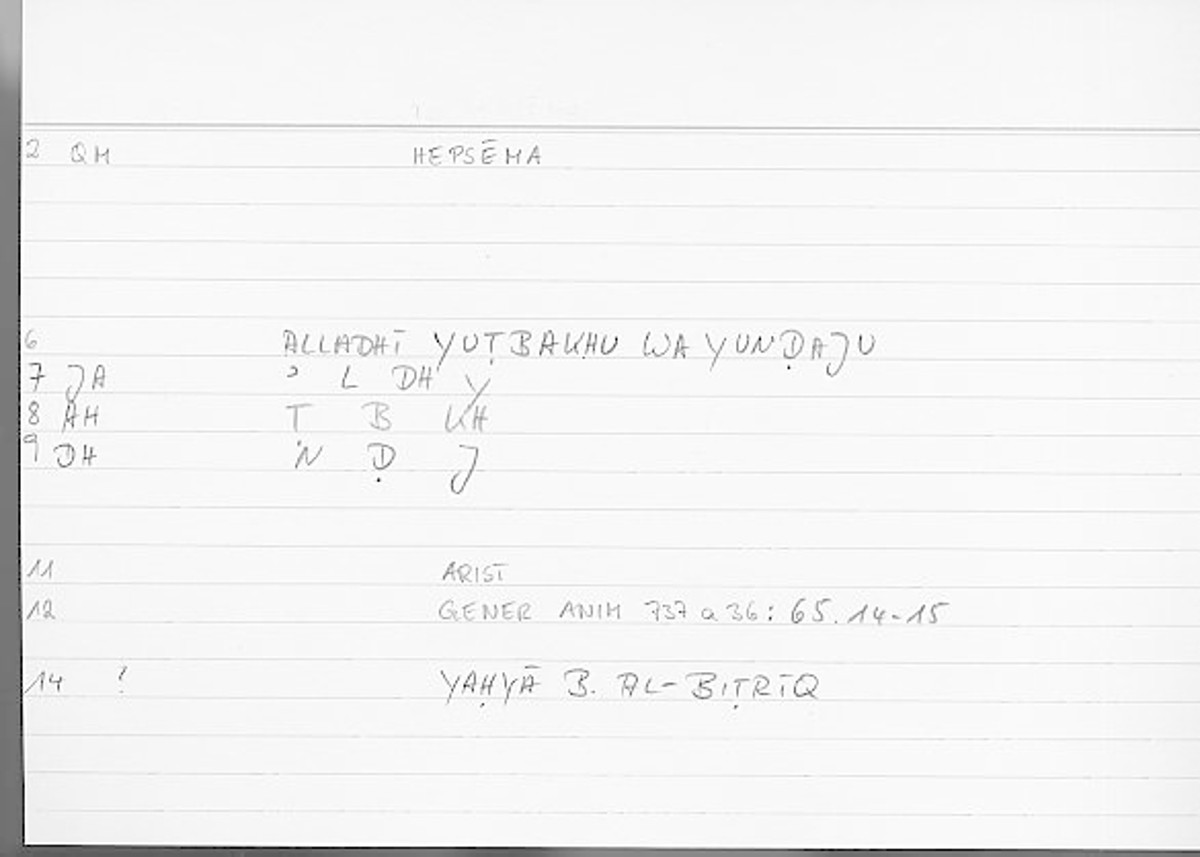 2 QM HEPSĒMA
6 ALLADHĪ YUṬBAKHU WA YUNḌAJU
7 JA ʾ L DH Y
8 AH Ṭ B KH
9 DH N Ḍ J
11 ARIST
12 GENER ANIM 737 a 36: 65.14-15
14 ! YAḤYĀ B. AL-BIṬRĪQ